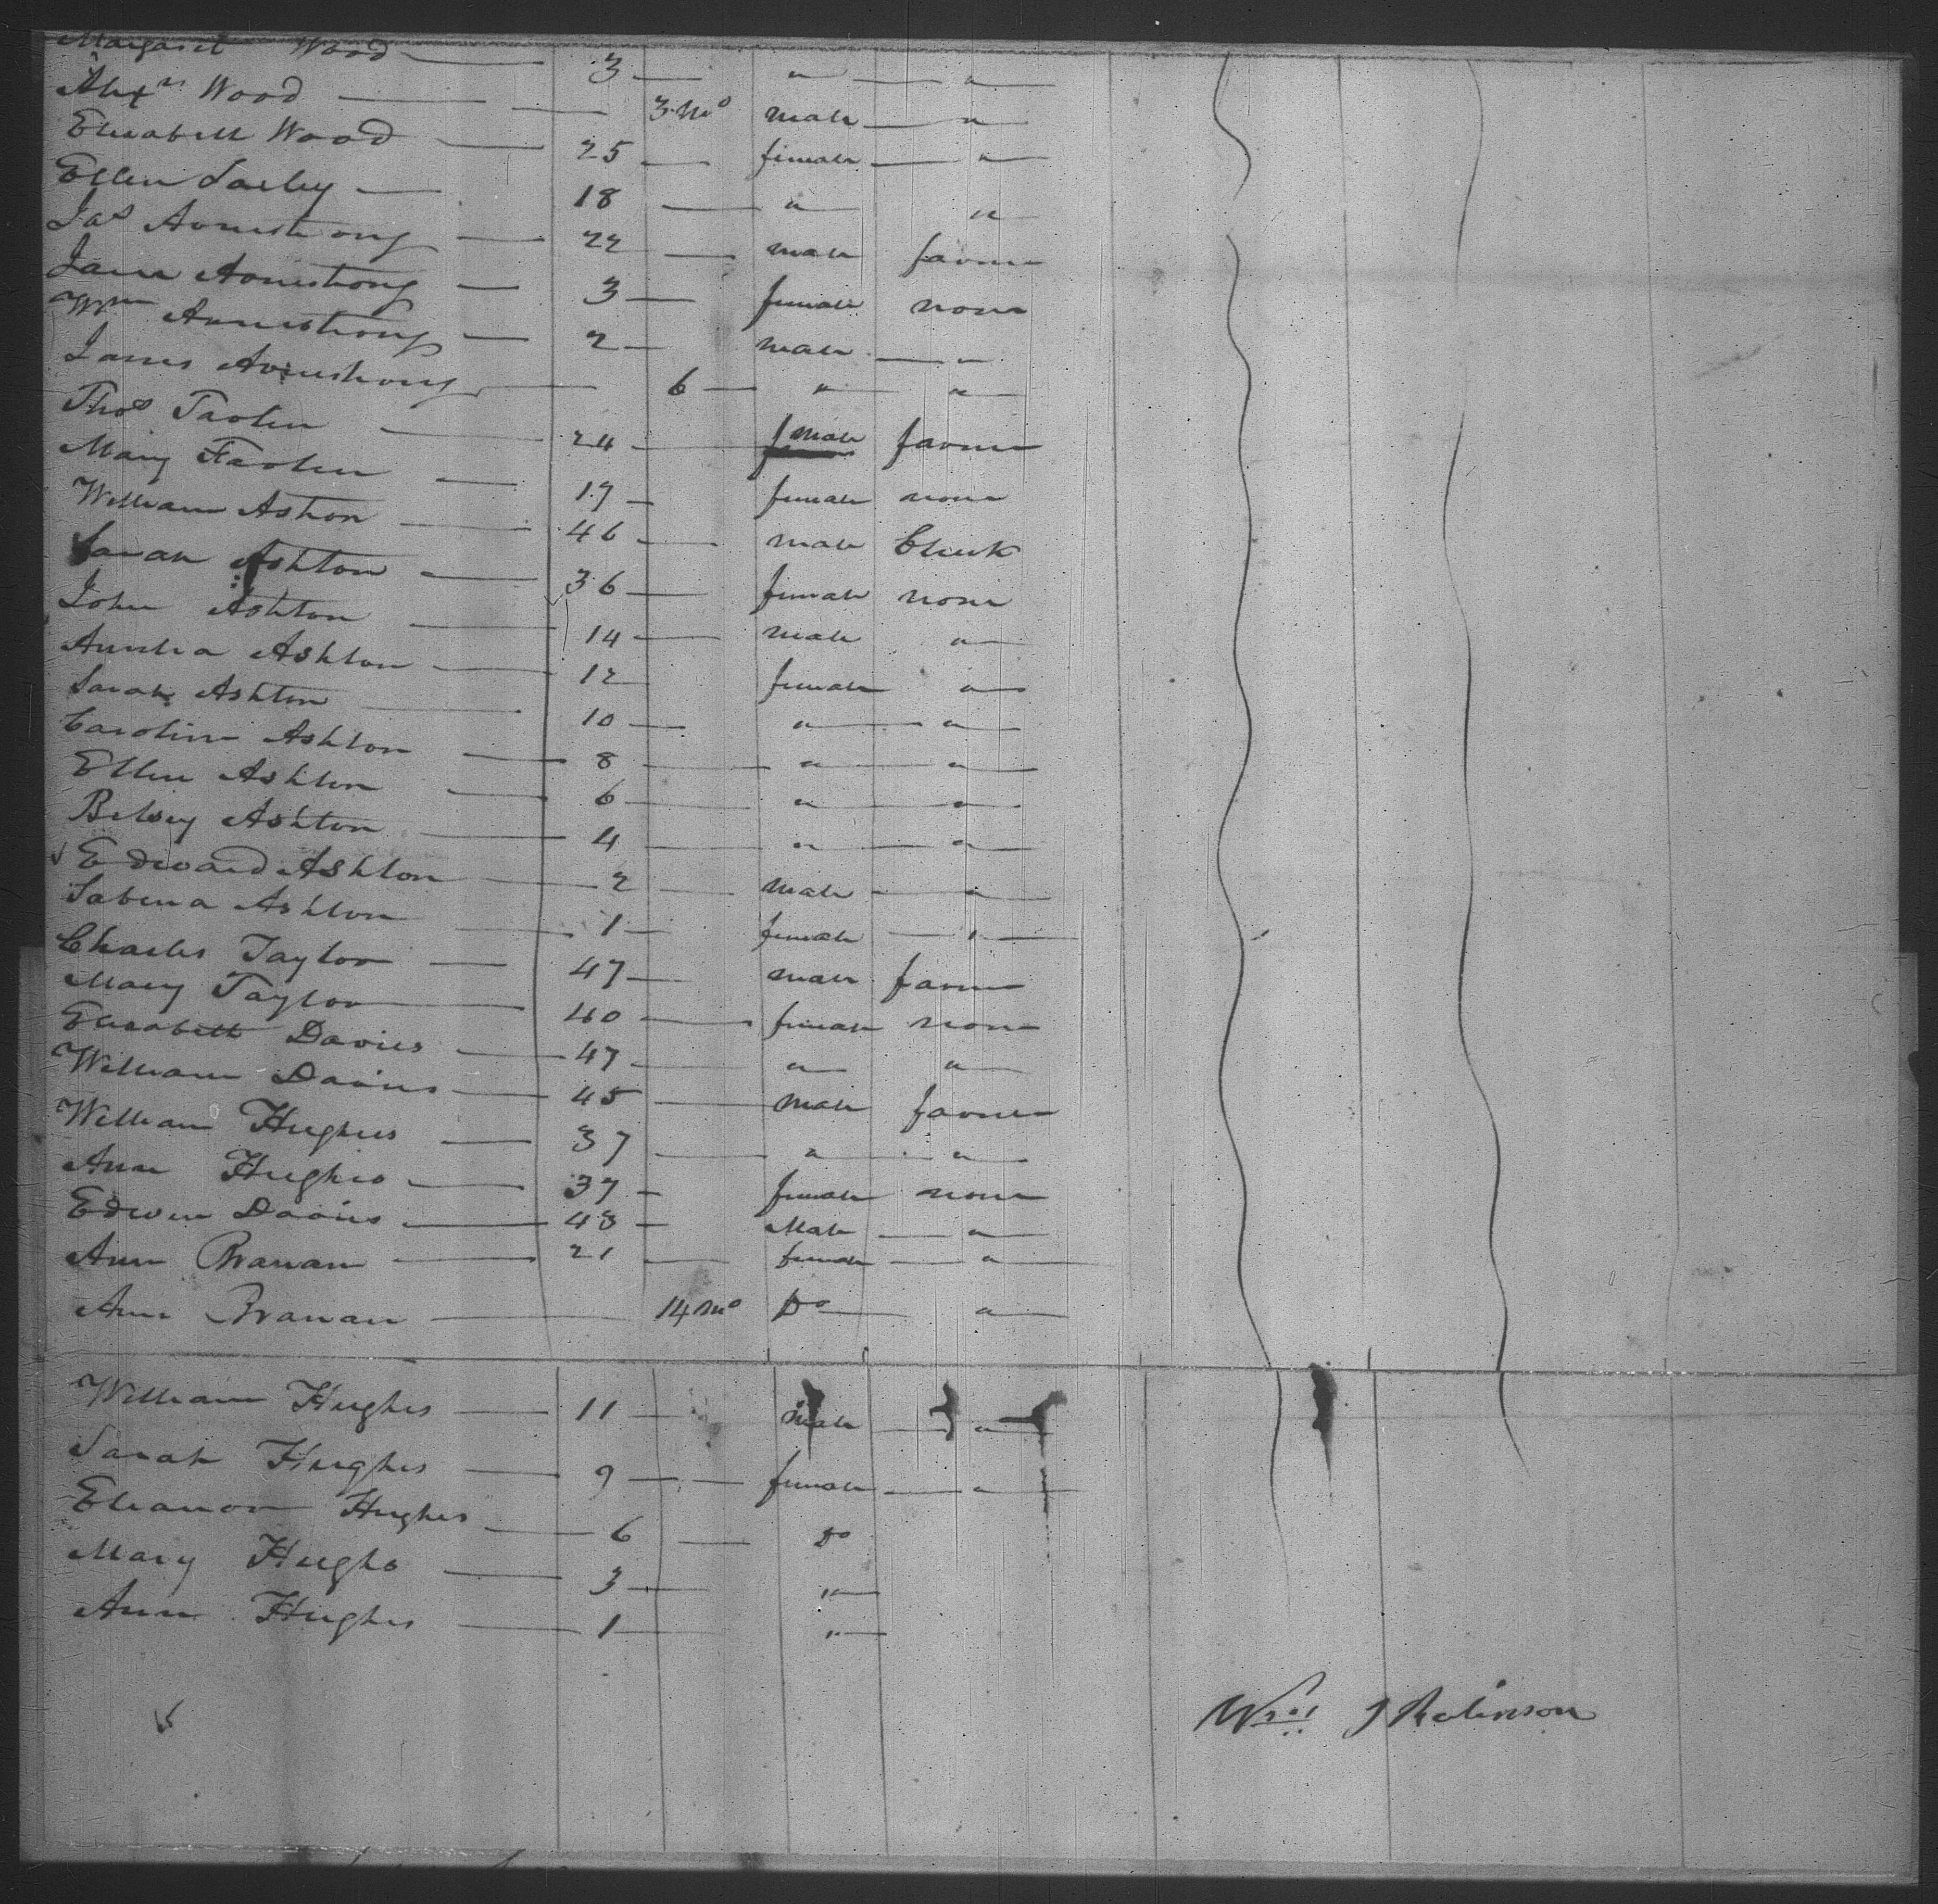 Margaret Wood 3 " "
Alexr Wood 3 mo male "
Elizabeth Wood 25 female "
Ellen 18 " "
Jas Armstrong 22 male farmer
Jane Armstrong 3 female none
Wm Armstrong 2 male "
James Armstrong 6 " "
Thos 24 male farmer
Mary 19 female none
William Ashton 46 male Clerk
Sarah Ashton 36 female none
John Ashton 14 male "
Ashton 12 female "
Sarah Ashton 10 " "
Caroline Ashton 8 " "
Ellen Ashton 6 " "
Betsey Ashton 4 " "
Edward Ashton 2 male "
Sabina Ashton 1 female "
Charles Taylor 47 male farmer
Mary Taylor 40 female none
Elizabeth Davies 47 " "
William Davies 45 male farmer
William Hughes 37 " "
Ann Hughes 37 female none
Edwin Davies 43 Male "
Ann Branan 21 female "
Ann Branan 14 mo Do "
William Hughes 11 male "
Sarah Hughes 9 female "
Eleanor Hughes 6 Do
Mary Hughs 3 "
Ann Hughes 1 "
Wm J Robinson